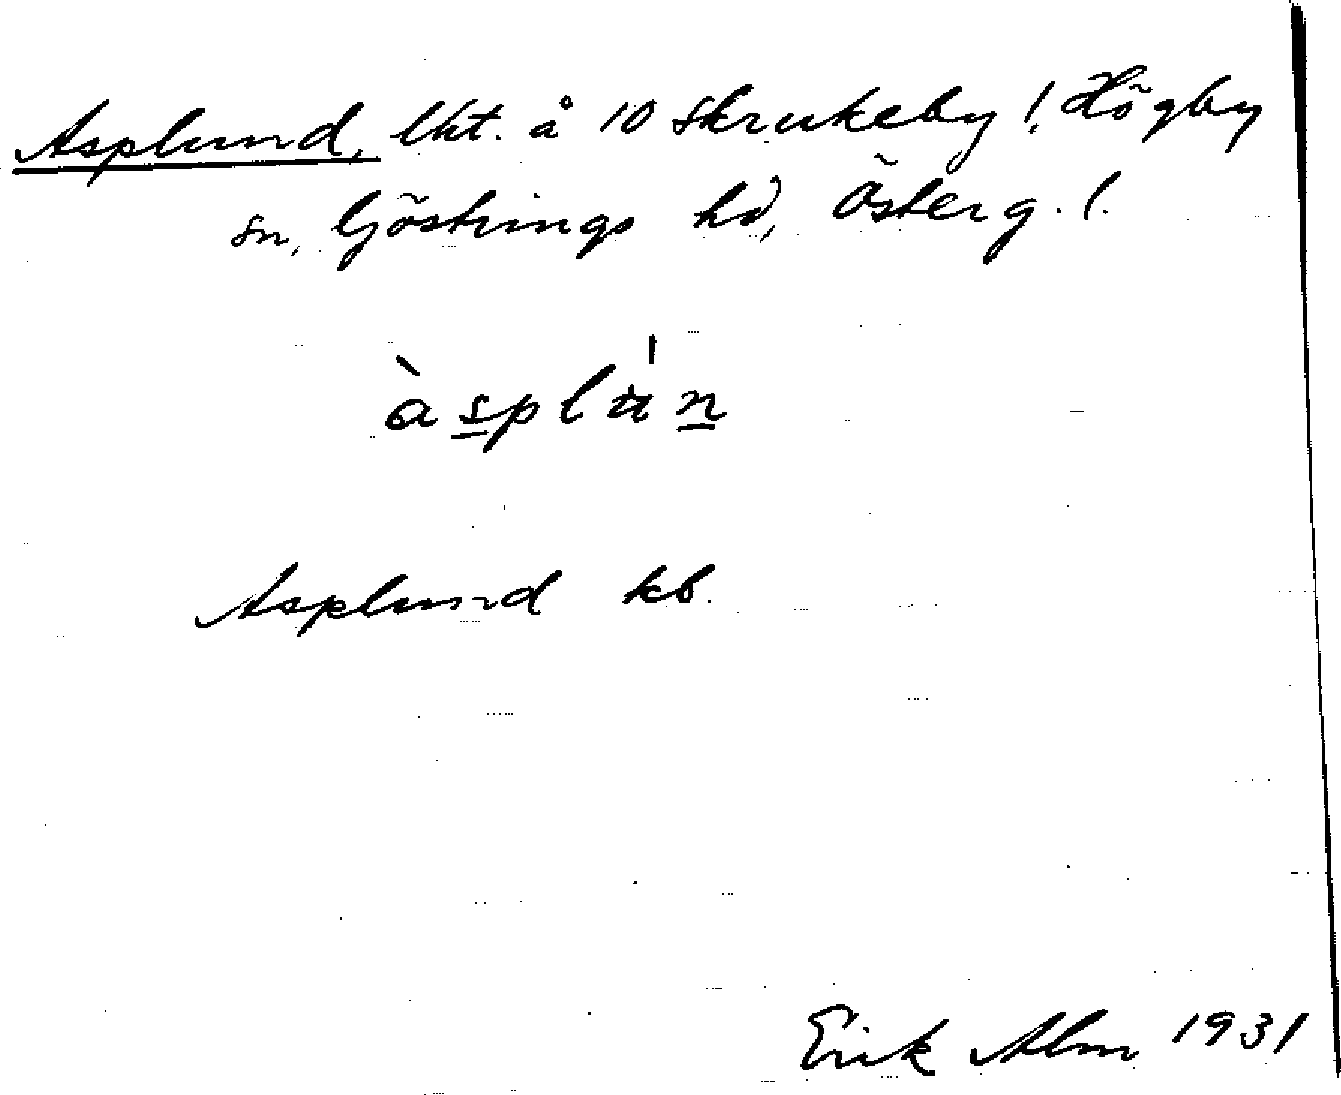 Asplund, lht. å 10 Skrukeby !, Högby
sn, Göstrings hd, Österg. l.
àsplu̍n
Asplund kb.
Erik Alm 1931